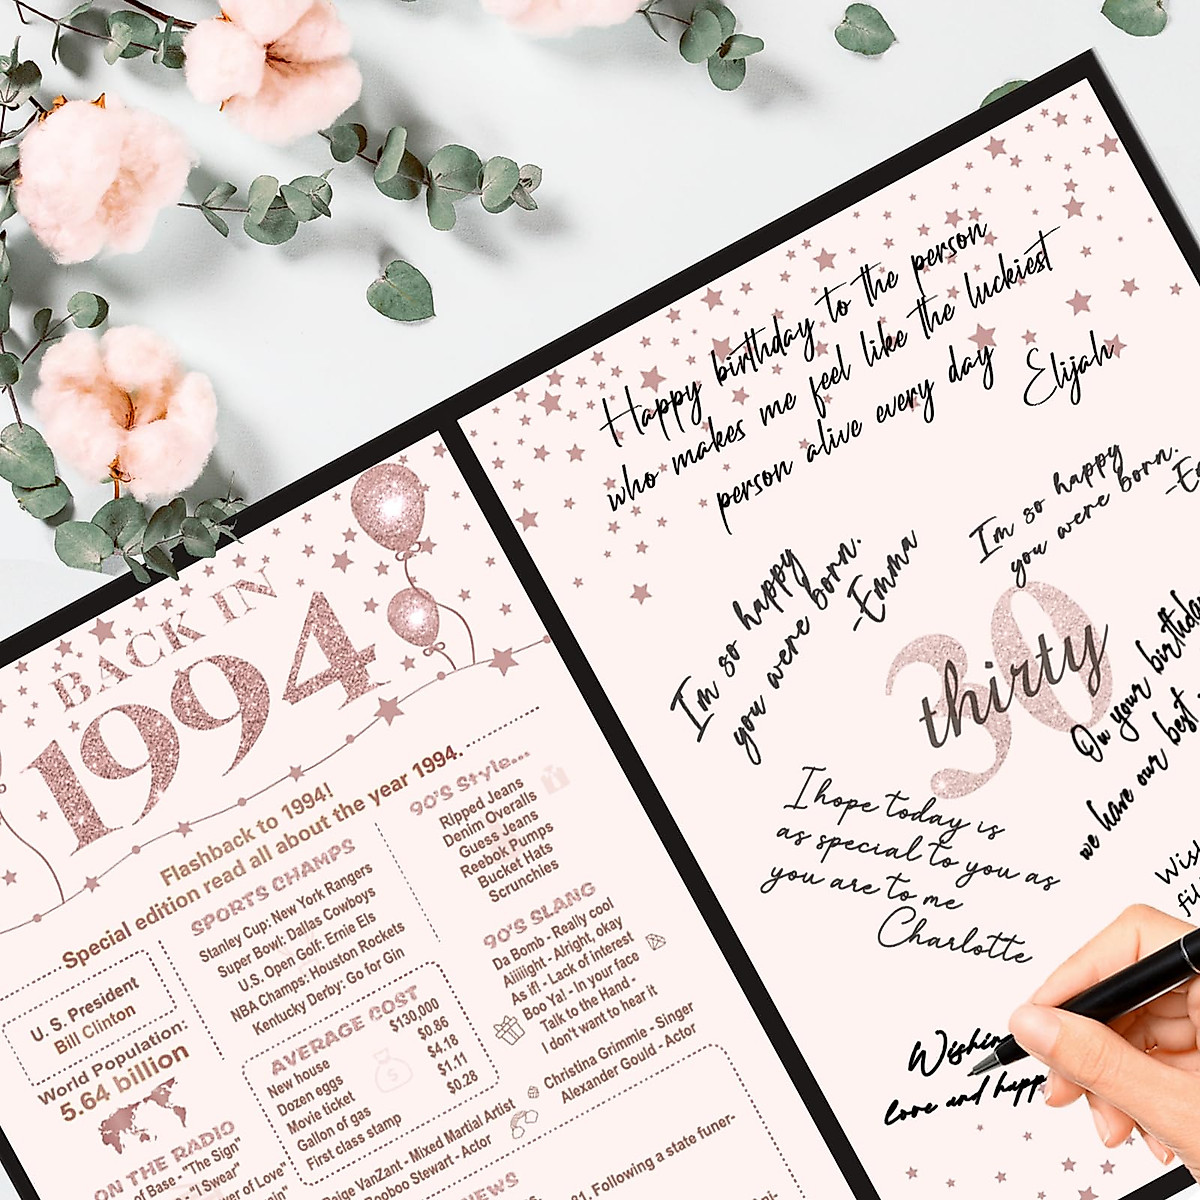 BACK IN
1994
Flashback to 1994!
Special edition read all about the year 1994.
U. S. President
Bill Clinton
World Population:
5.64 billion
ON THE RADIO
of Base - "The Sign"
"I Swear"
of Love"
SPORTS CHAMPS
Stanley Cup: New York Rangers
Super Bowl: Dallas Cowboys
U.S. Open Golf: Ernie Els
NBA Champs: Houston Rockets
Kentucky Derby: Go for Gin
AVERAGE COST
New house $130,000
Dozen eggs $0.86
Movie ticket $4.18
Gallon of gas $1.11
First class stamp $0.28
90'S Style...
Ripped Jeans
Denim Overalls
Guess Jeans
Reebok Pumps
Bucket Hats
Scrunchies
90'S SLANG
Da Bomb - Really cool
Aiiiight - Alright, okay
As if! - Lack of interest
Boo Ya! - In your face
Talk to the Hand -
I don't want to hear it
Christina Grimmie - Singer
Alexander Gould - Actor
VanZant - Mixed Martial Artist
Booboo Stewart - Actor
NEWS
Following a state funer-
Happy birthday to the person
who makes me feel like the luckiest
person alive every day
Elijah
I'm so happy
you were born.
-Emma
I'm so happy
you were born.
30
thirty
On your birthday
we have our best
I hope today is
as special to you as
you are to me
Charlotte
love and